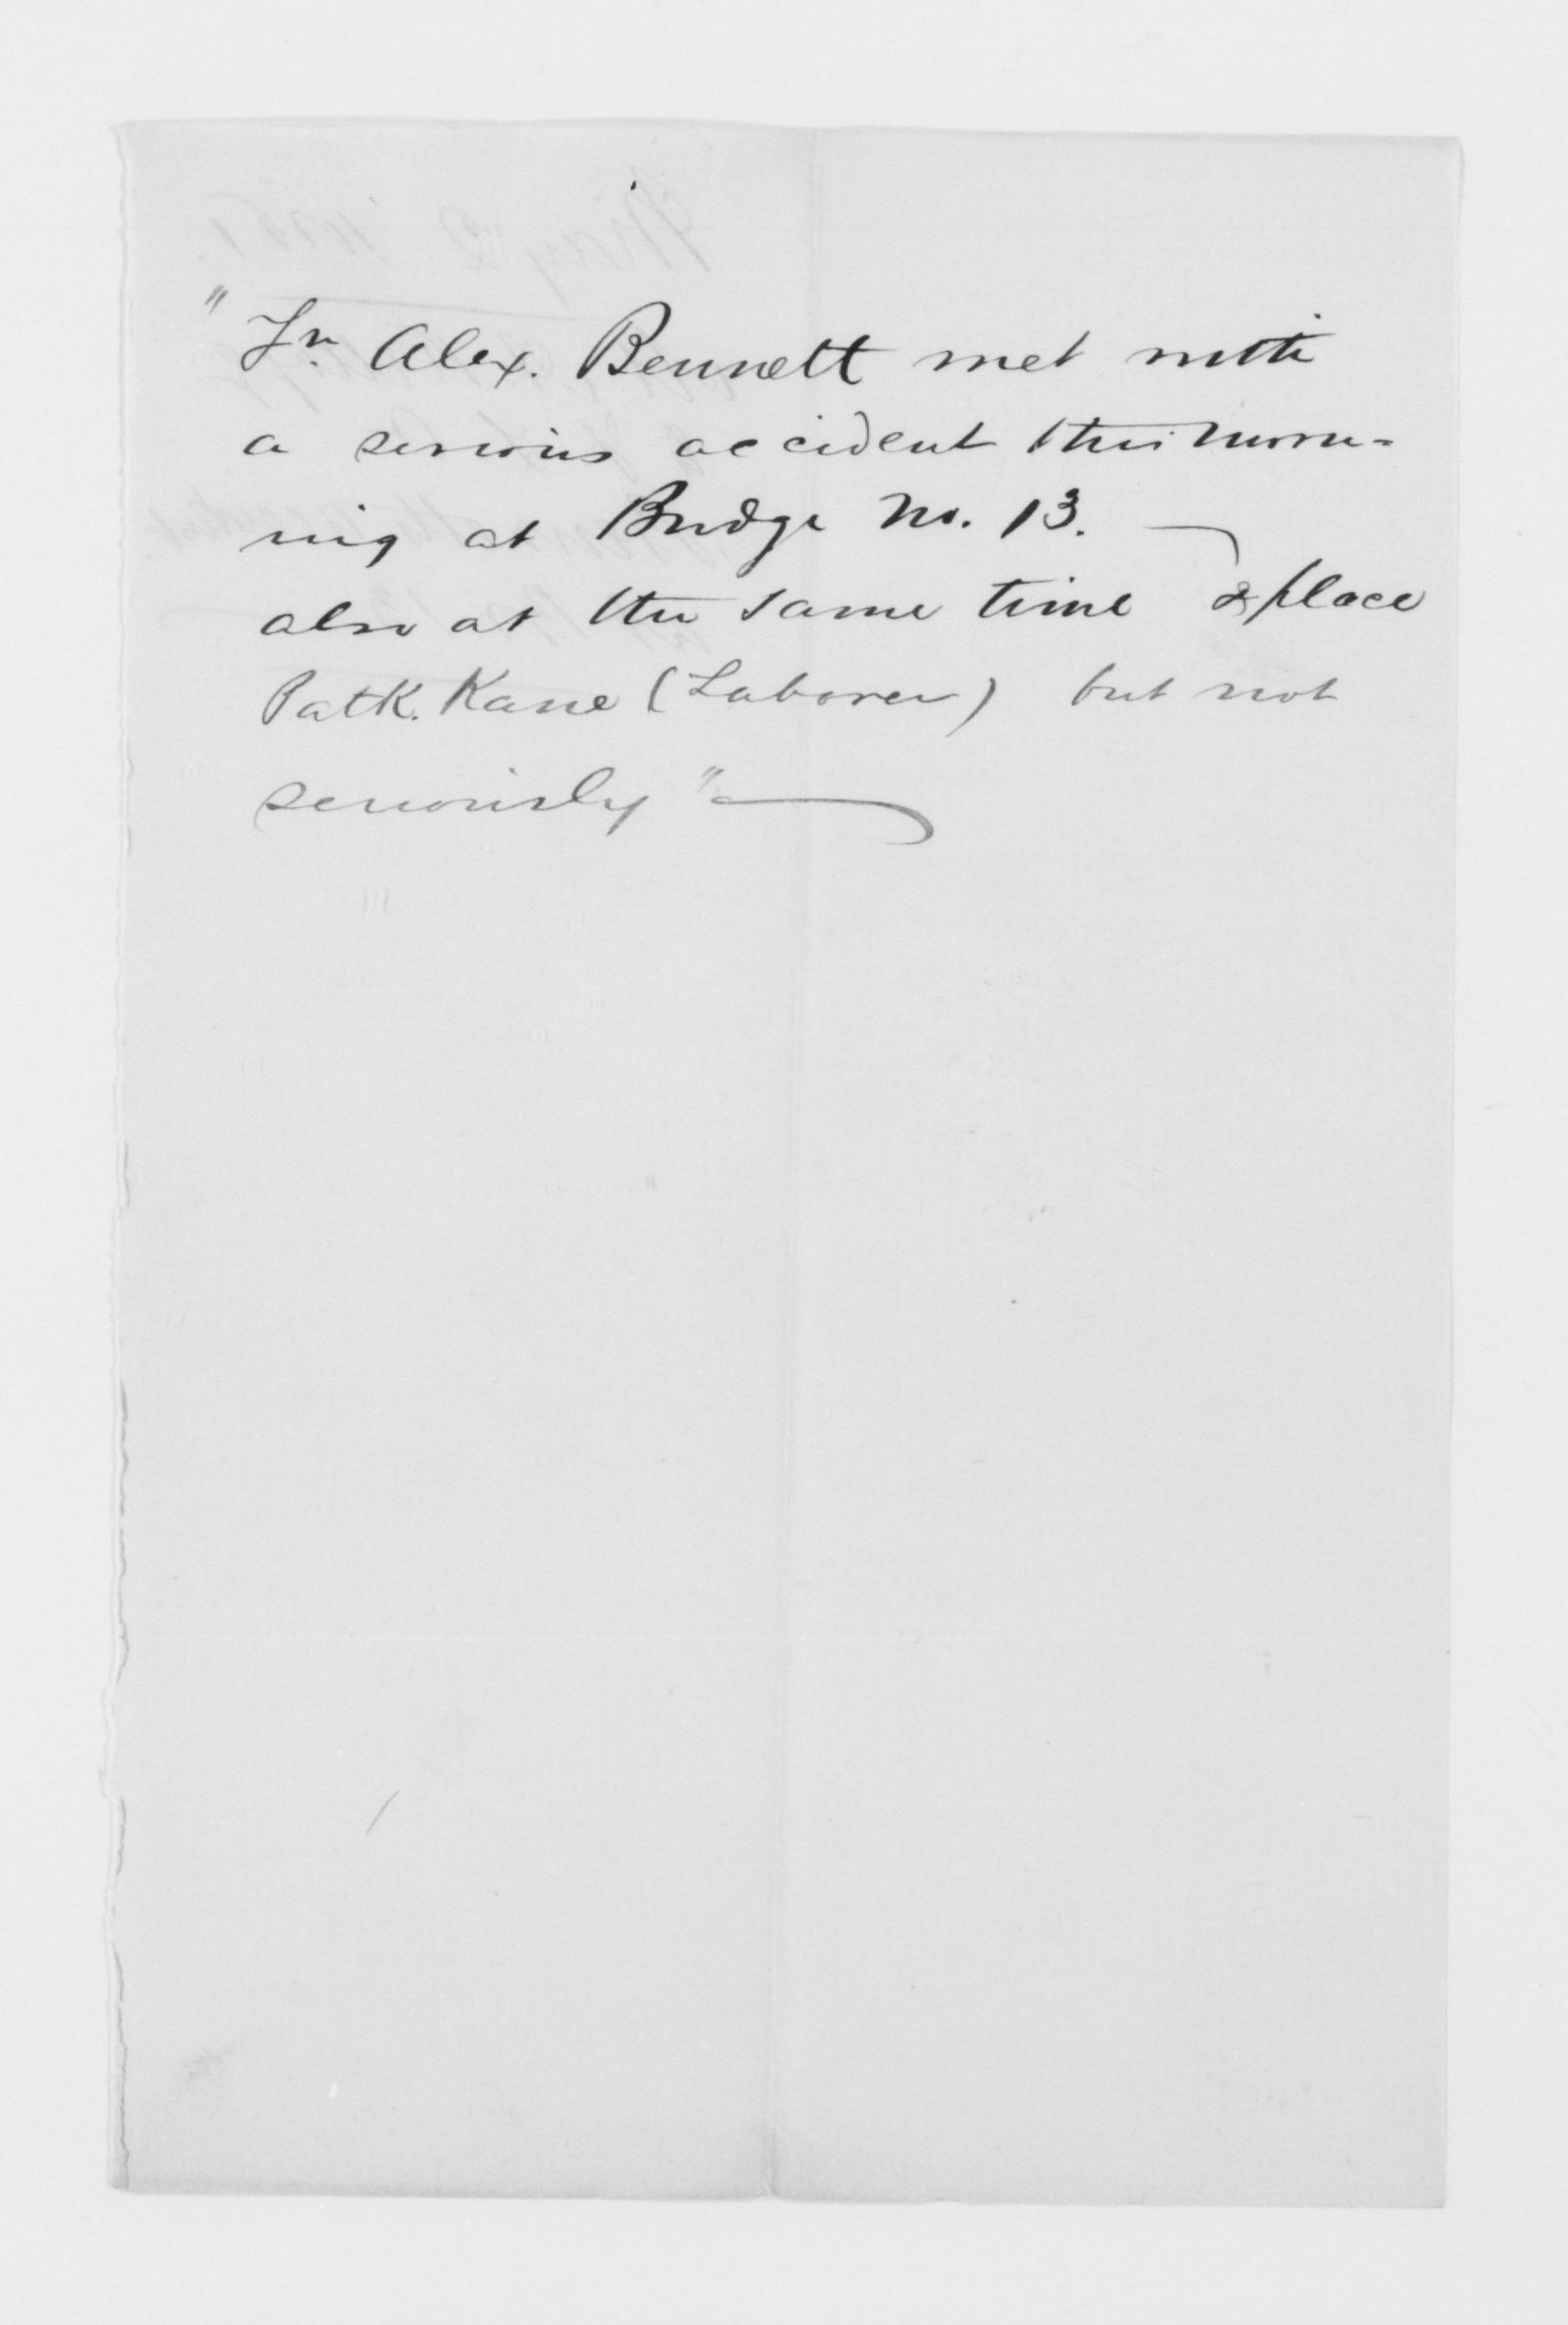 " Fn. Alex. Bennett met with
a serious accident this morn=
ning at Bridge No. 13. —
also at the same time & place
Patk. Kane (Laborer) but not
seriously " —
May 2